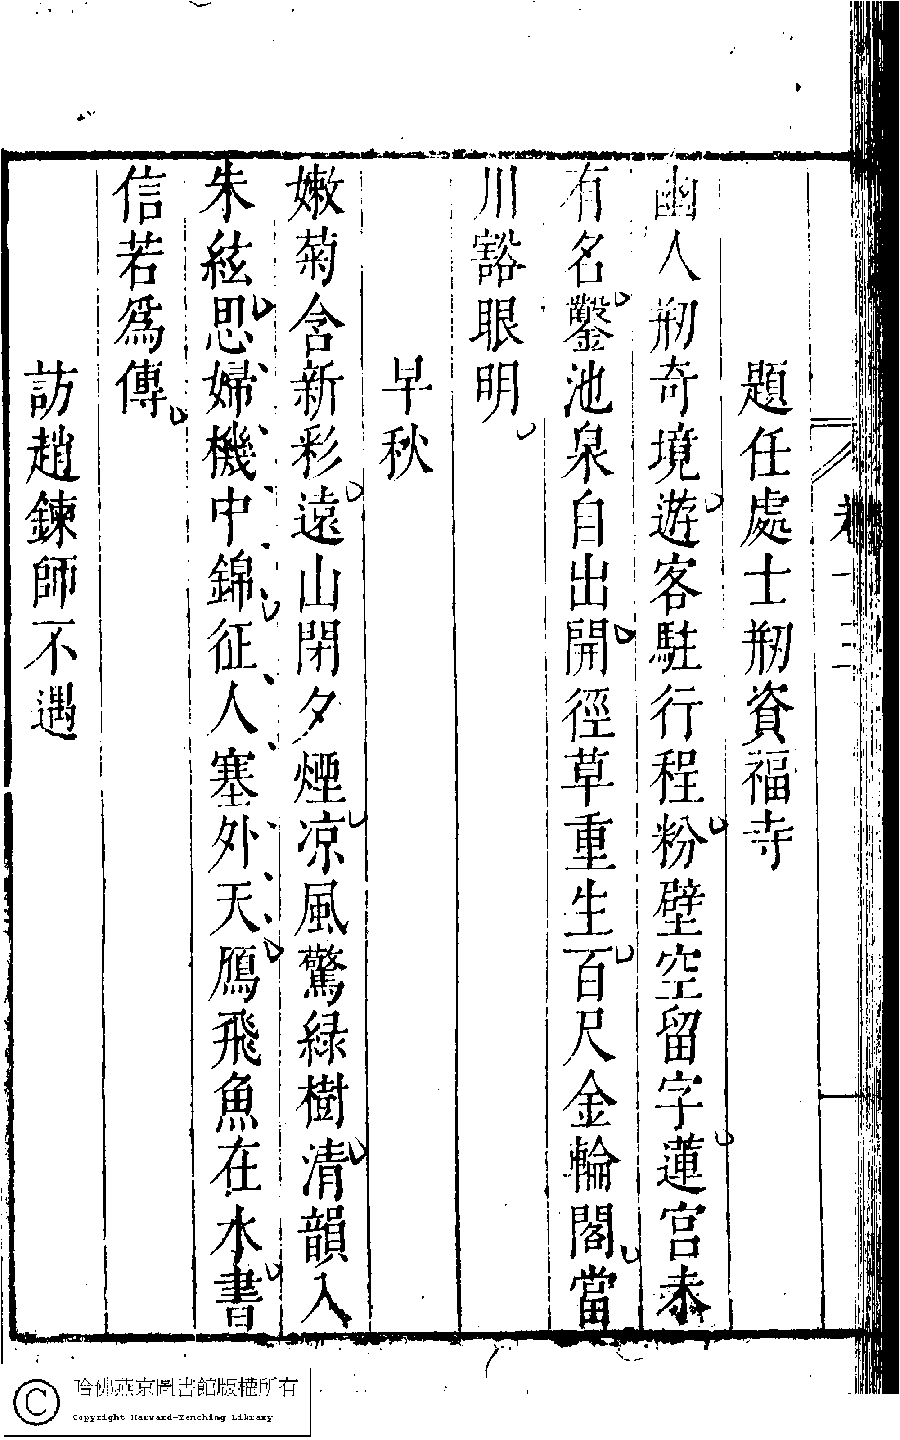 題任處士剏資福寺
幽人剏奇境遊客駐行程粉壁空留字蓮宮未
有名鑿池泉自出開徑草重生百尺金輪閣當
川豁眼明
早秋
嫩菊含新彩遠山閉夕煙凉風驚緑樹清韻入
朱絃思婦機中錦征人塞外天鴈飛魚在水書
信若爲傳
訪趙鍊師不遇
哈佛燕京圖書館版權所有
Copyright Harvard-Yenching Library